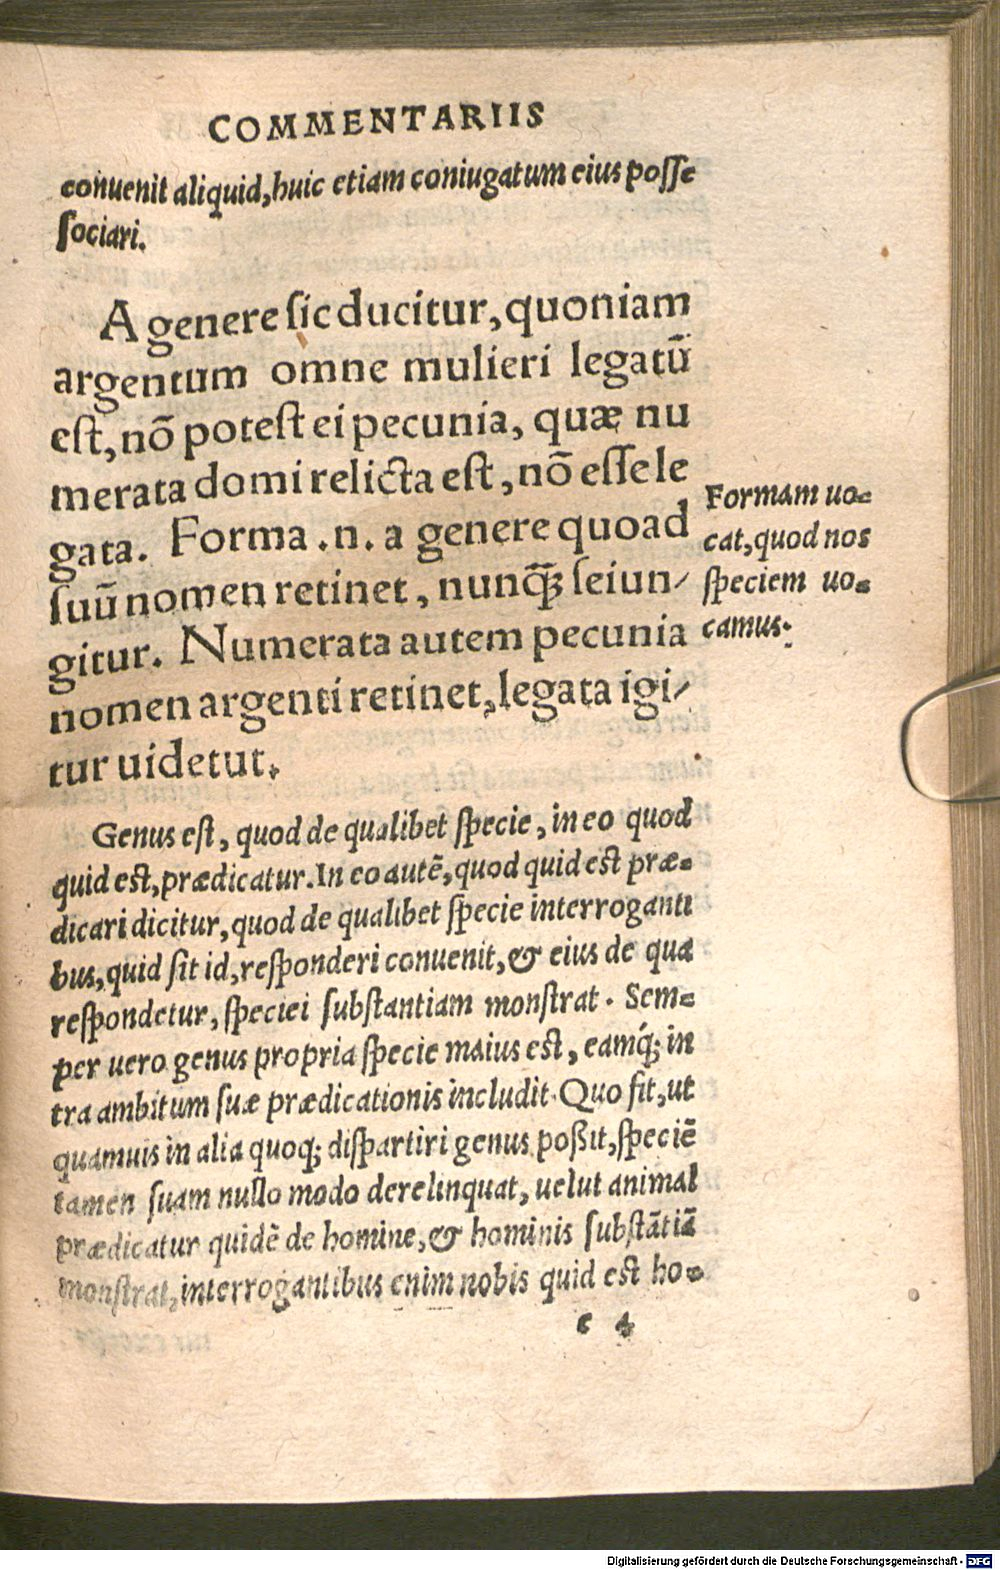 COMMENTARIIS
conuenit aliquid, huic etiam coniugatum eius posse
sociari.
A genere sic ducitur, quoniam
argentum omne mulieri legatū
est, nō potest ei pecunia, quæ nu
merata domi relicta est, nō esse le
gata. Forma .n. a genere quoad
suū nomen retinet, nunq̃; seiun-
gitur. Numerata autem pecunia
nomen argenti retinet, legata igi-
tur uidetut.
Formam uo-
cat, quod nos
speciem uo-
camus.
Genus est, quod de qualibet specie, in eo quod
quid est, prædicatur. In eo autē, quod quid est præ-
dicari dicitur, quod de qualibet specie interroganti
bus, quid sit id, responderi conuenit, & eius de qua
respondetur, speciei substantiam monstrat. Sem-
per uero genus propria specie maius est, eamq́; in
tra ambitum suæ prædicationis includit. Quo fit, ut
quamuis in alia quoq; dispartiri genus poßit, speciē
tamen suam nullo modo derelinquat, uelut animal
prædicatur quidē de homine, & hominis substātiā
monstrat, interrogantibus enim nobis quid est ho-
c 4
Digitalisierung gefördert durch die Deutsche Forschungsgemeinschaft - DFG